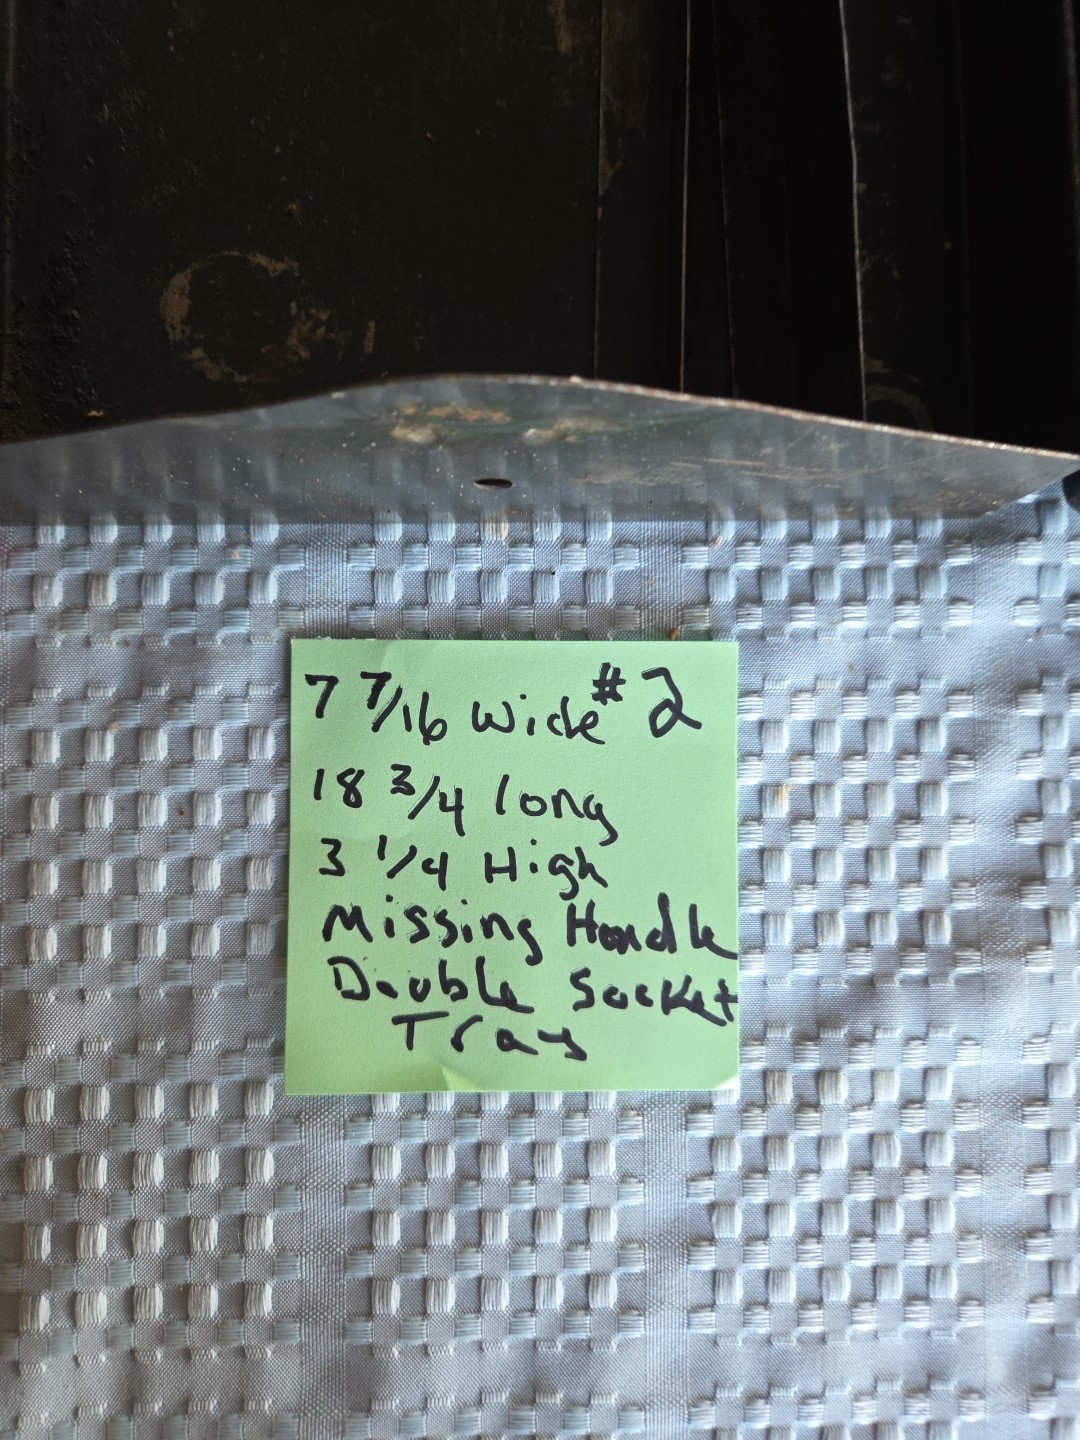 7 7/16 Wide #2
18 3/4 long
3 1/4 High
Missing Handle
Double Socket
Tray